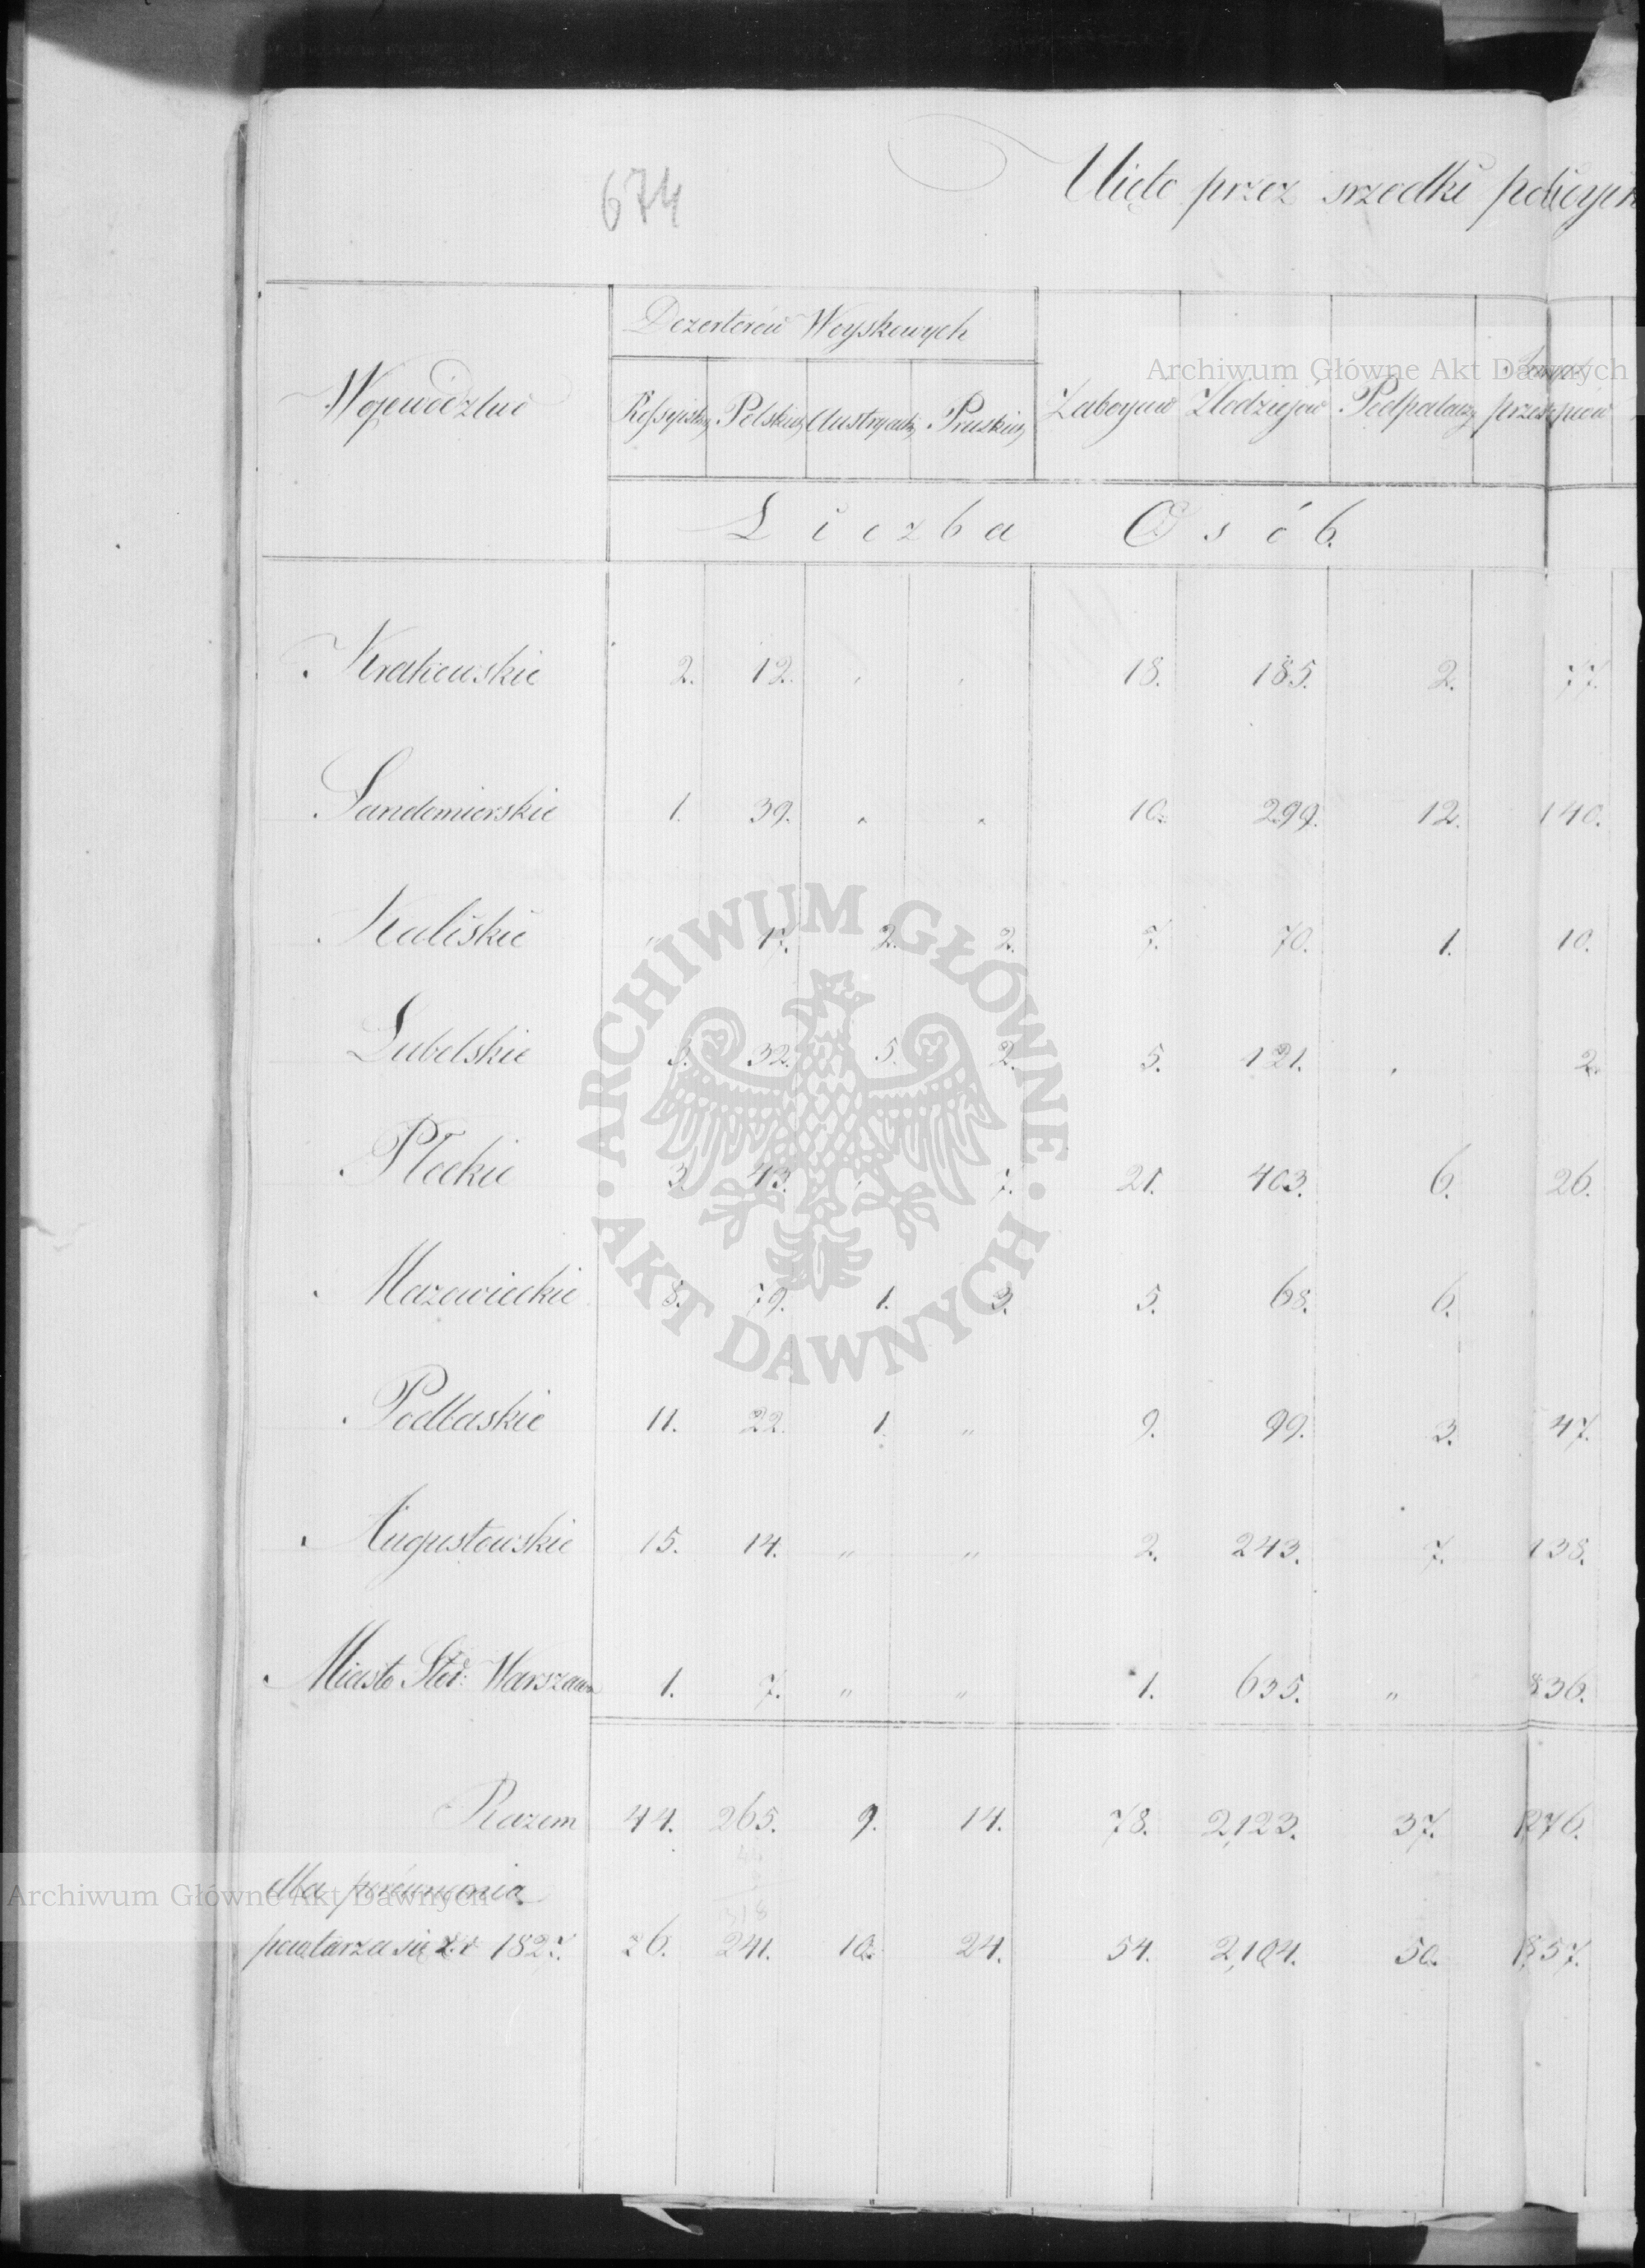 674
Ujęto przez srzodki policyin
Województwo
Dezerterów Woyskowych
Rossyiskich Polskich Austryack: Pruskich Zaboyców Złodziejów Podpalaczy przestępców
Liczba Osób.
Krakowskie 2. 12. 18. 185. 2. 77.
Sandomierskie 1. 39. " " 10. 299. 12. 140.
Kaliskie " 17. 2. 2. 7. 70. 1. 10.
Lubelskie 3. 32. 5. 2. 5. 121. 2.
Płockie 3. 43. 7. 21. 403. 6. 26.
Mazowieckie 8. 79. 1. 3. 5. 68. 6.
Podlaskie 11. 22. 1. " 9. 99. 3. 47.
Augustowskie 15. 14. " " 2. 243. 7. 138.
Miasto Stoł: Warszawa 1. 7. " " 1. 635. " 836.
Razem 44. 265. 9. 14. 78. 2,123. 37. 1276.
dla porównania
powtarza się z r. 1827. 26. 241. 10. 24. 54. 2,104. 50. 1,357.
Archiwum Główne Akt Dawnych
ARCHIWUM GŁÓWNE
AKT DAWNYCH
Archiwum Główne Akt Dawnych